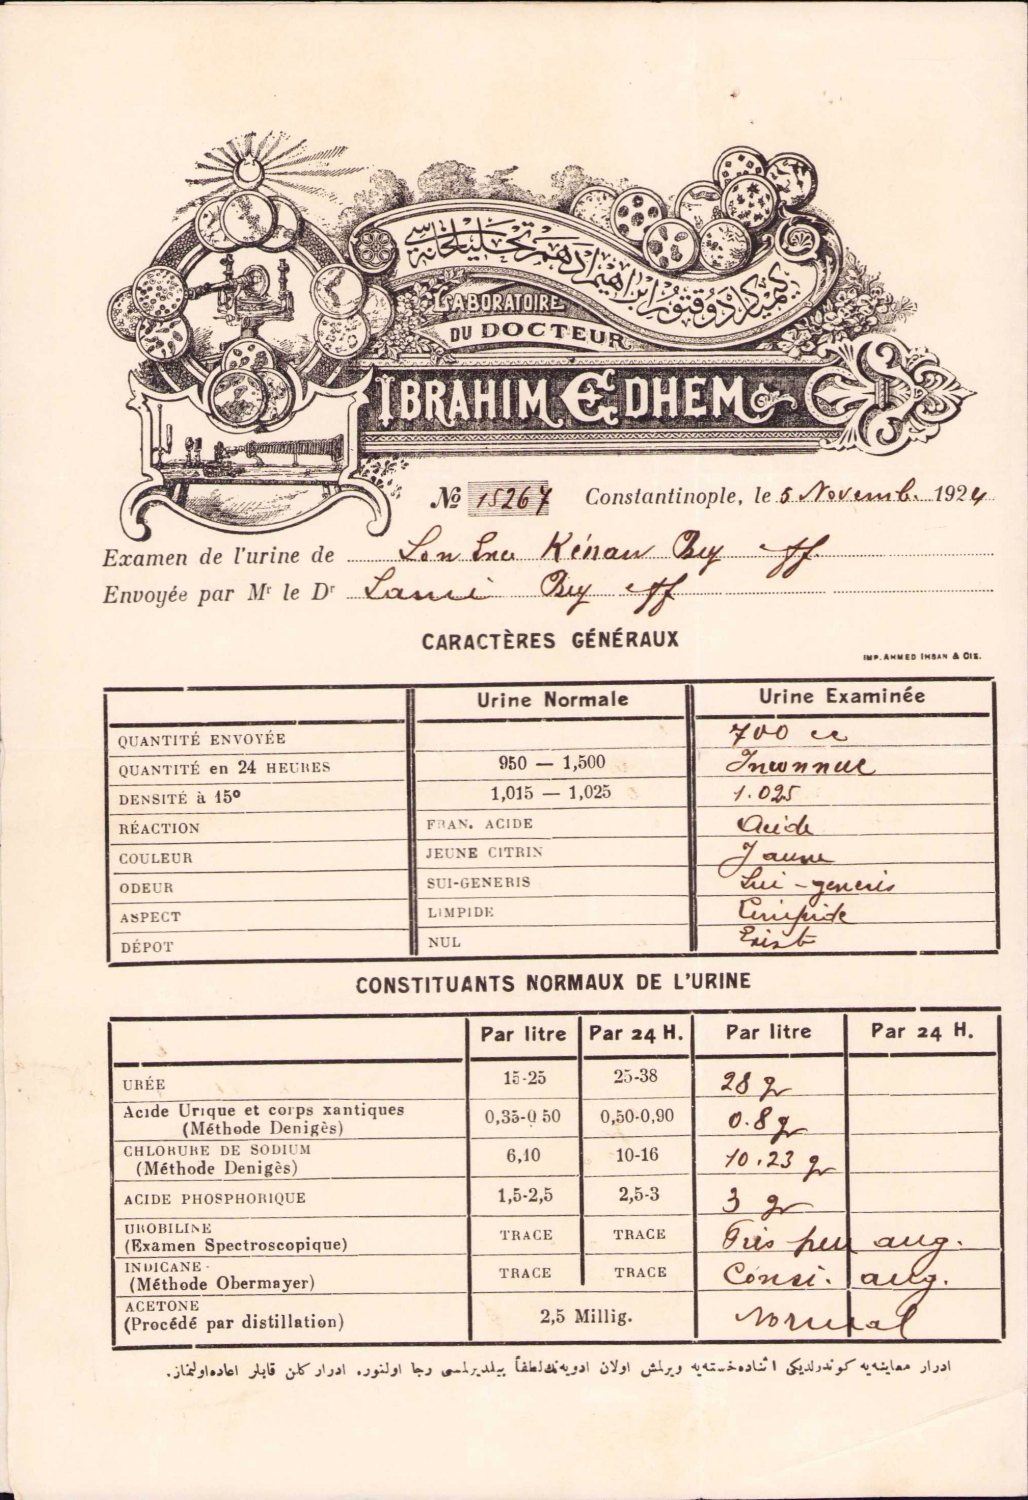 كيميكر دوقتور ابراهيم ادهم تحليلخانه سى
LABORATOIRE
DU DOCTEUR
IBRAHIM EDHEM
No 15267 Constantinople, le 5 Novemb. 1924
Examen de l'urine de Kénan Bey eff.
Envoyée par Mr le Dr Lami Bey eff
CARACTÈRES GÉNÉRAUX
IMP. AHMED IHSAN & CIE.
Urine Normale Urine Examinée
QUANTITÉ ENVOYÉE 700 cc
QUANTITÉ en 24 HEURES 950 — 1,500 Inconnue
DENSITÉ à 15° 1,015 — 1,025 1.025
RÉACTION FRAN. ACIDE Acide
COULEUR JEUNE CITRIN Jaune
ODEUR SUI-GENERIS Sui-generis
ASPECT LIMPIDE Limpide
DÉPOT NUL Exist
CONSTITUANTS NORMAUX DE L'URINE
Par litre Par 24 H. Par litre Par 24 H.
URÉE 15-25 25-38 28 gr
Acide Urique et corps xantiques
(Méthode Denigès) 0,35-0 50 0,50-0,90 0.8 gr
CHLORURE DE SODIUM
(Méthode Denigès) 6,10 10-16 10.23 gr
ACIDE PHOSPHORIQUE 1,5-2,5 2,5-3 3 gr
UROBILINE
(Examen Spectroscopique) TRACE TRACE Très peu aug.
INDICANE
(Méthode Obermayer) TRACE TRACE Consi. aug.
ACETONE
(Procédé par distillation) 2,5 Millig. Normal
ادرار معاینه‌یه کوندرلدیکی اثناده خسته‌یه ویرلمش اولان ادویه‌نك لطفاً بیلدیرلمسی رجا اولنور. ادرار کلن قابلر اعاده اولنماز.